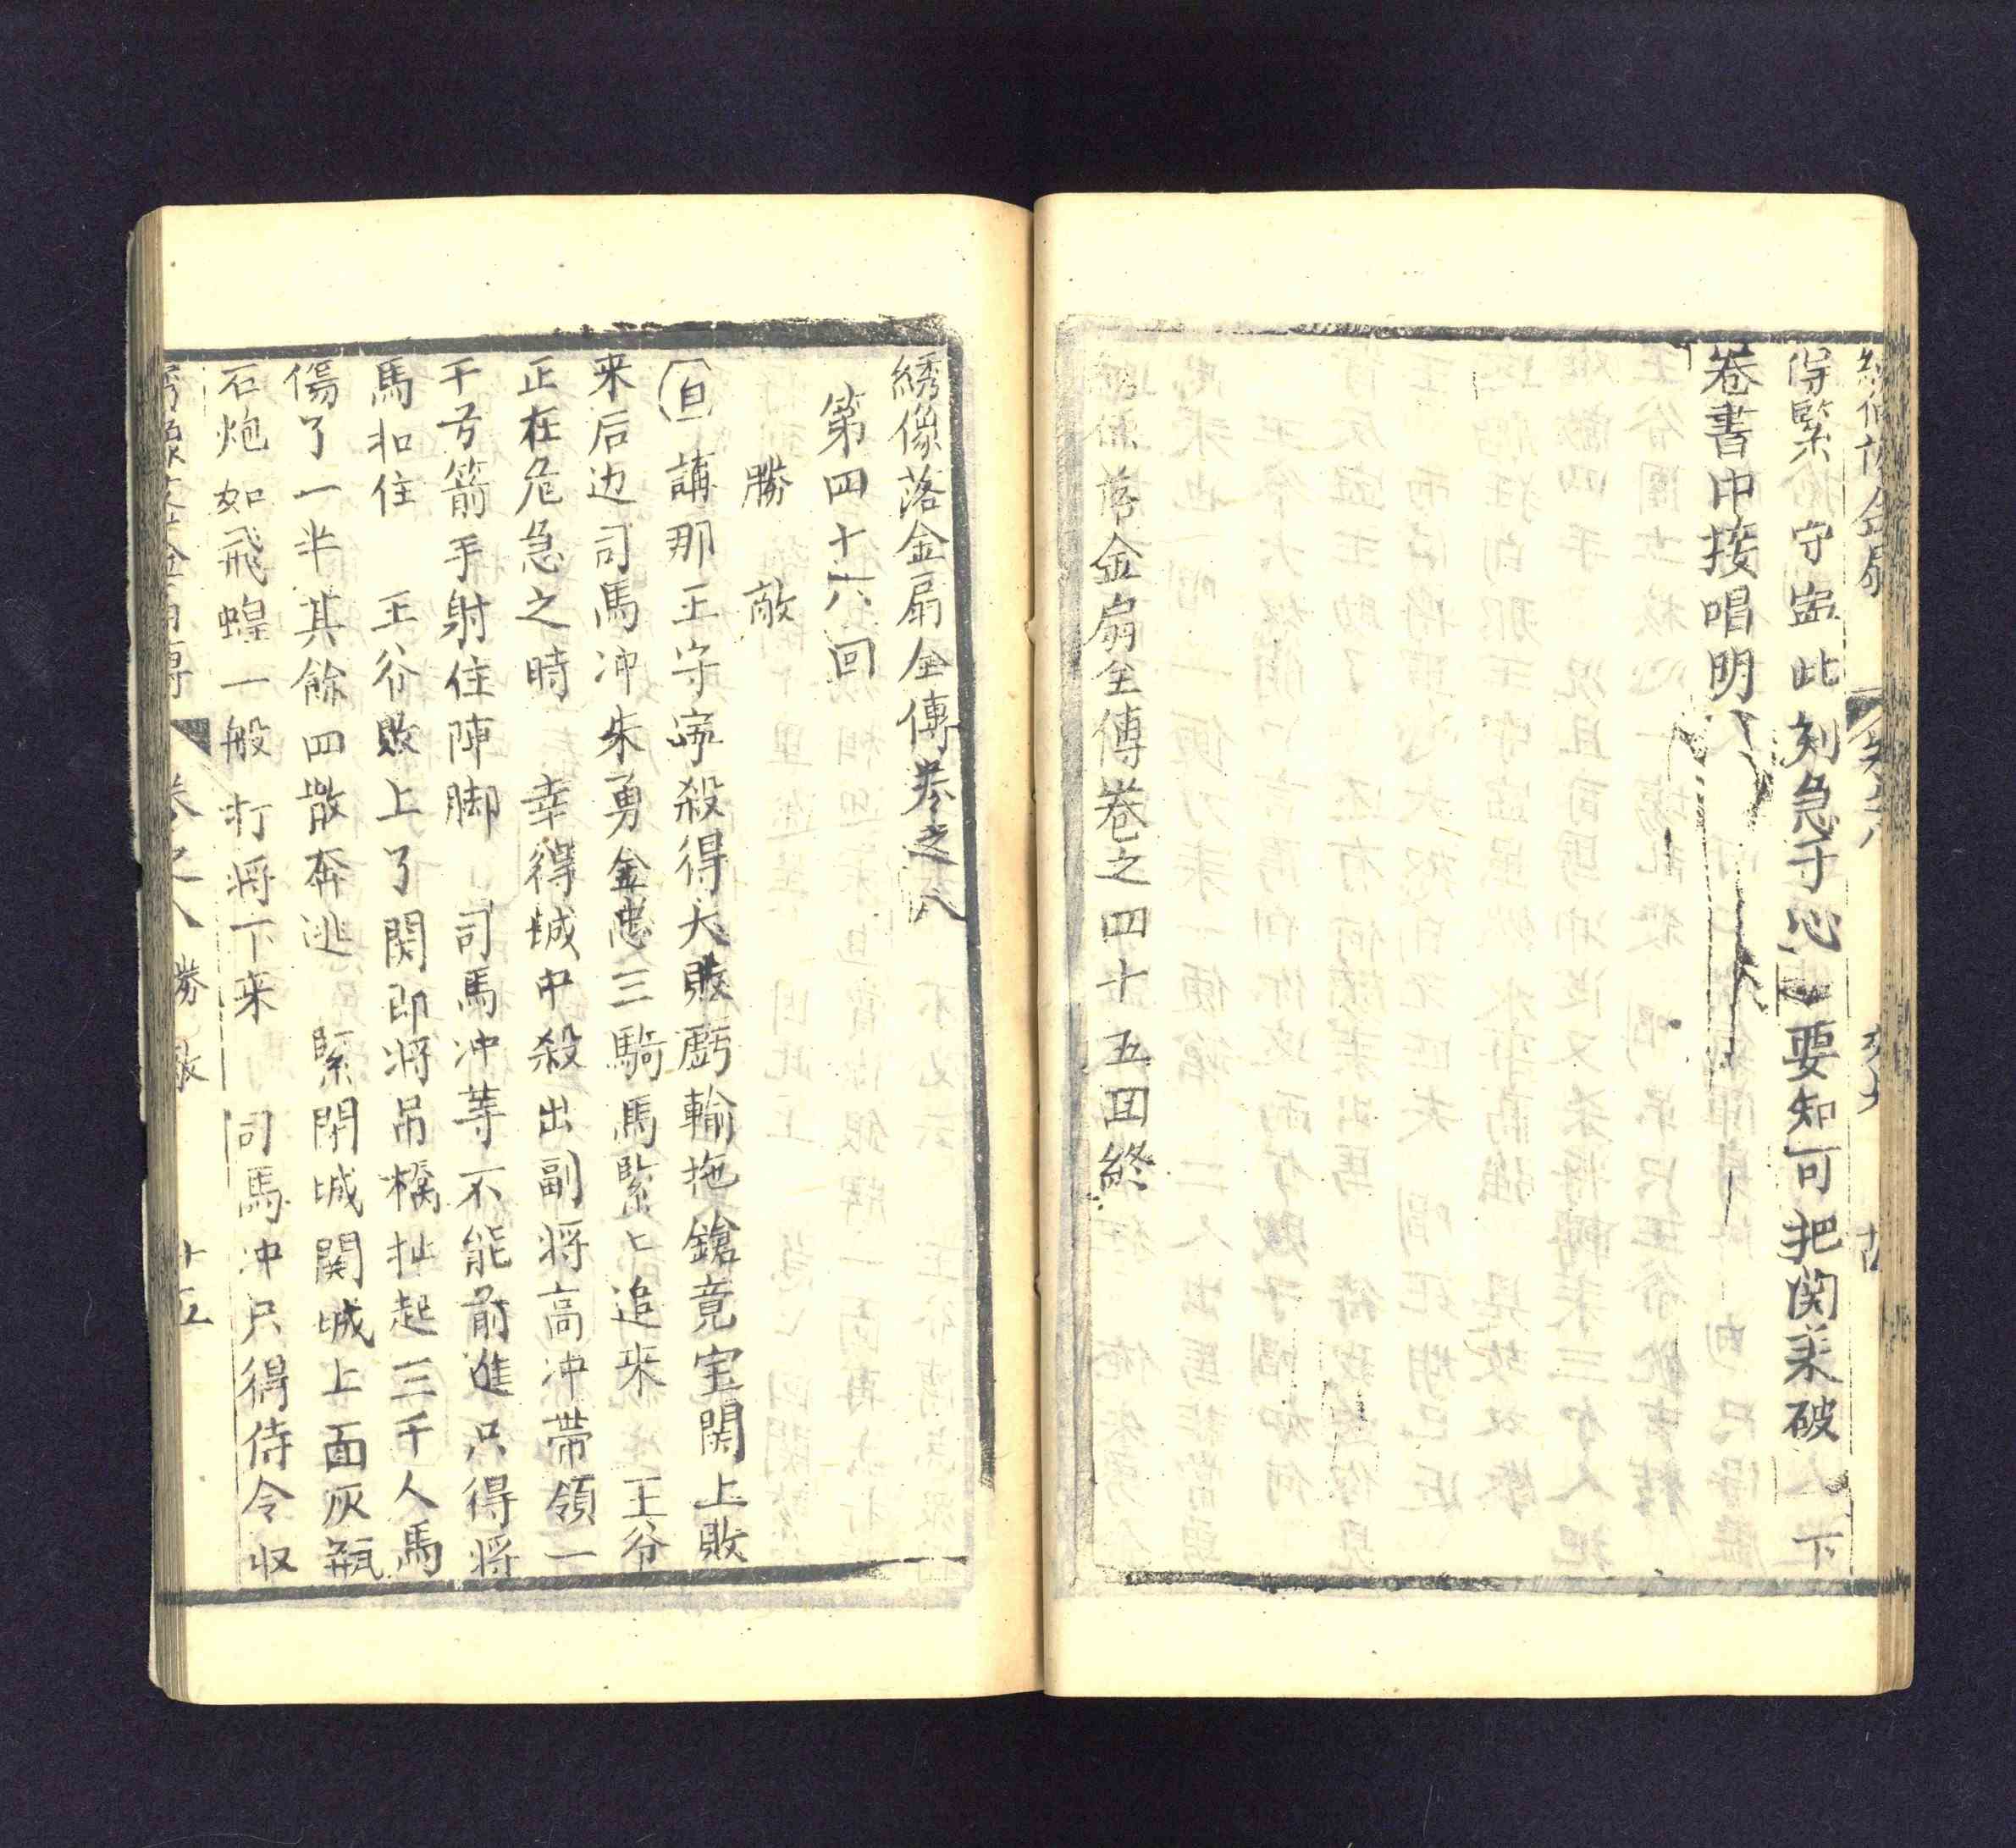 得緊 守盅此刻急于心 要知可把関来破 下
卷書中接唱明
落金扇全傳卷之四十五回終
綉像落金扇全傳卷之八
第四十六回
勝 敵
白 講那王守盅殺得大敗虧輸拖鎗竟宝関上敗
来后边司馬冲朱勇金忠三騎馬緊〻追来 王谷
正在危急之時 幸得城中殺出副将高冲帯領一
千方箭手射住陣脚 司馬冲等不能前進只得将
馬扣住 王谷敗上了関即将吊橋扯起三千人馬
傷了一半其餘四散奔逃 緊閉城関城上面灰瓶
石炮如飛蝗一般打将下来 司馬冲只得侍令収
卷之八 勝敵 十五